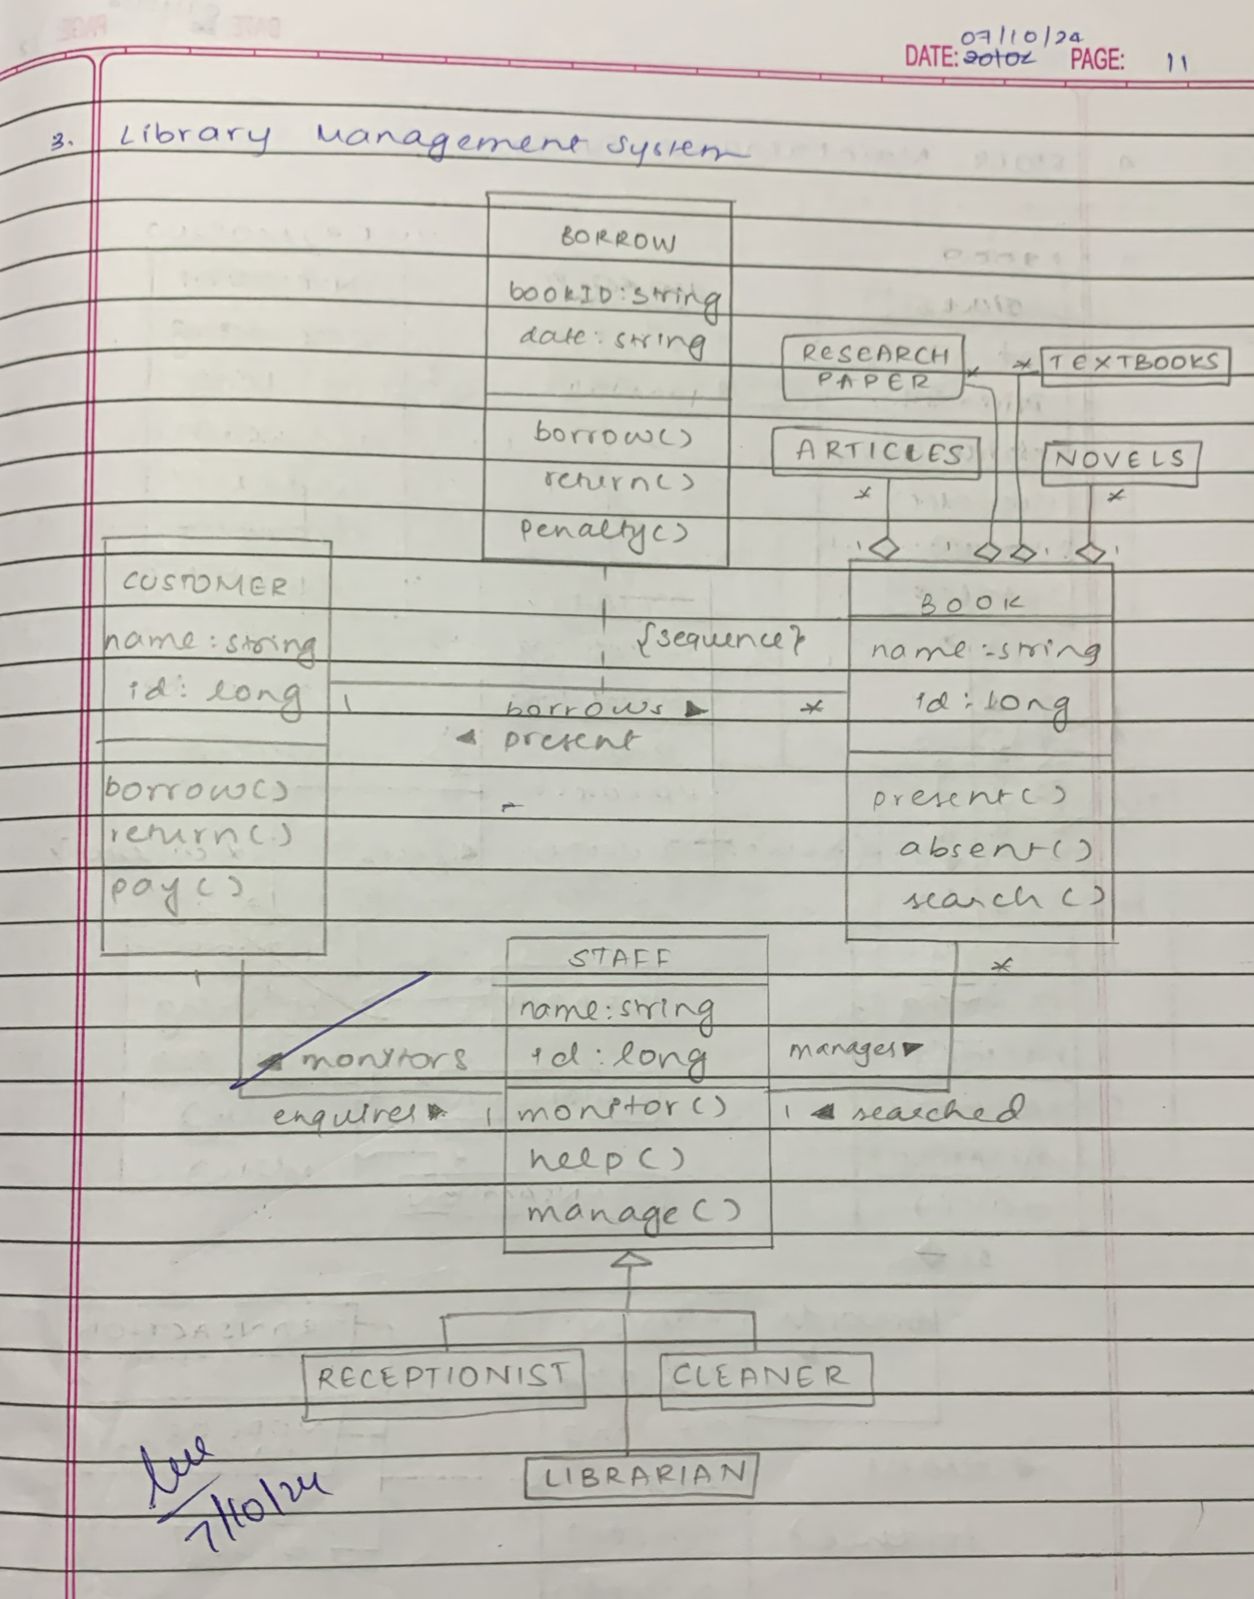 07/10/24
DATE: PAGE: 11
3. Library Management System
BORROW
bookID:string
date:string
borrow()
return()
penalty()
RESEARCH
PAPER
*
* TEXTBOOKS
ARTICLES
NOVELS
*
*
1 1 1 1
CUSTOMER
name:string
id:long
borrow()
return()
pay()
{sequence}
1 borrows ▶ *
◀ present
BOOK
name:string
id:long
present()
absent()
search()
STAFF
name:string
id:long
monitor()
help()
manage()
1
◀ monitors
enquires ▶ 1
*
manages ▶
1 ◀ searched
RECEPTIONIST
CLEANER
LIBRARIAN
7/10/24